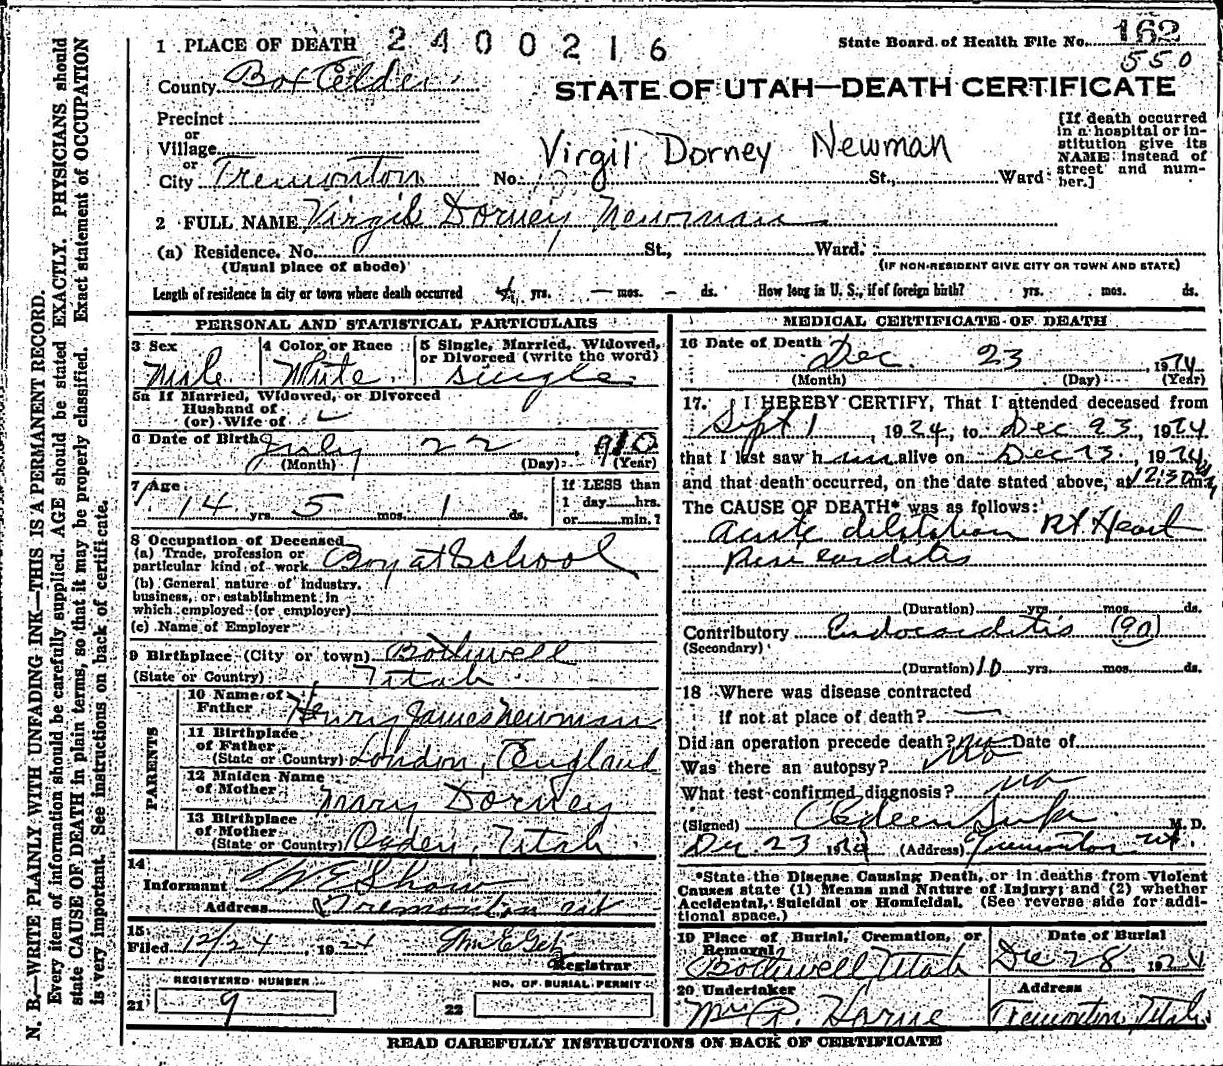 1 PLACE OF DEATH 2400216 State Board of Health File No. 162
550
County Box Elder STATE OF UTAH—DEATH CERTIFICATE
Precinct
or
Village
or
City Tremonton No. St., Ward
Virgil Dorney Newman
[If death occurred in a hospital or institution give its NAME instead of street and number.]
2 FULL NAME Virgil Dorney Newman
(a) Residence. No. St., Ward.
(Usual place of abode) (IF NON-RESIDENT GIVE CITY OR TOWN AND STATE)
Length of residence in city or town where death occurred yrs. — mos. - ds. How long in U. S., if of foreign birth? yrs. mos. ds.
PERSONAL AND STATISTICAL PARTICULARS
3 Sex 4 Color or Race 5 Single, Married, Widowed, or Divorced (write the word)
Male White single
5a If Married, Widowed, or Divorced
Husband of
(or) Wife of
6 Date of Birth July 22 1910
(Month) (Day) (Year)
7 Age 14 yrs. 5 mos. 1 ds.
If LESS than
1 day hrs.
or min.?
8 Occupation of Deceased
(a) Trade, profession or particular kind of work Boy at School
(b) General nature of industry, business, or establishment in which employed (or employer)
(c) Name of Employer
9 Birthplace (City or town) Bothwell
(State or Country) Utah
PARENTS
10 Name of Father Henry James Newman
11 Birthplace of Father (State or Country) London, England
12 Maiden Name of Mother Mary Dorney
13 Birthplace of Mother (State or Country) Ogden, Utah
14
Informant Shaw
Address Tremonton Ut
15
Filed 12/24, 1924
Registrar
REGISTERED NUMBER
21 9
NO. OF BURIAL PERMIT
22
MEDICAL CERTIFICATE OF DEATH
16 Date of Death Dec. 23, 1924
(Month) (Day) (Year)
17. I HEREBY CERTIFY, That I attended deceased from
Sept 1, 1924, to Dec 23, 1924
that I last saw him alive on Dec 23, 1924,
and that death occurred, on the date stated above, at 12:30 m.
The CAUSE OF DEATH* was as follows:
Acute dilatation Rt Heart
Pericarditis
(Duration) yrs. mos. ds.
Contributory Endocarditis (90)
(Secondary)
(Duration) 10 yrs. mos. ds.
18 Where was disease contracted
if not at place of death? —
Did an operation precede death? no Date of
Was there an autopsy? No
What test confirmed diagnosis? no
(Signed) M. D.
Dec 23 1924 (Address) Tremonton Ut.
*State the Disease Causing Death, or in deaths from Violent Causes state (1) Means and Nature of Injury; and (2) whether Accidental, Suicidal or Homicidal. (See reverse side for additional space.)
19 Place of Burial, Cremation, or Removal Date of Burial
Bothwell Utah Dec 28, 1924
20 Undertaker Address
A. Horne Tremonton, Utah
READ CAREFULLY INSTRUCTIONS ON BACK OF CERTIFICATE
N. B.—WRITE PLAINLY WITH UNFADING INK—THIS IS A PERMANENT RECORD.
Every item of information should be carefully supplied. AGE should be stated EXACTLY. PHYSICIANS should
state CAUSE OF DEATH in plain terms, so that it may be properly classified. Exact statement of OCCUPATION
is very important. See instructions on back of certificate.